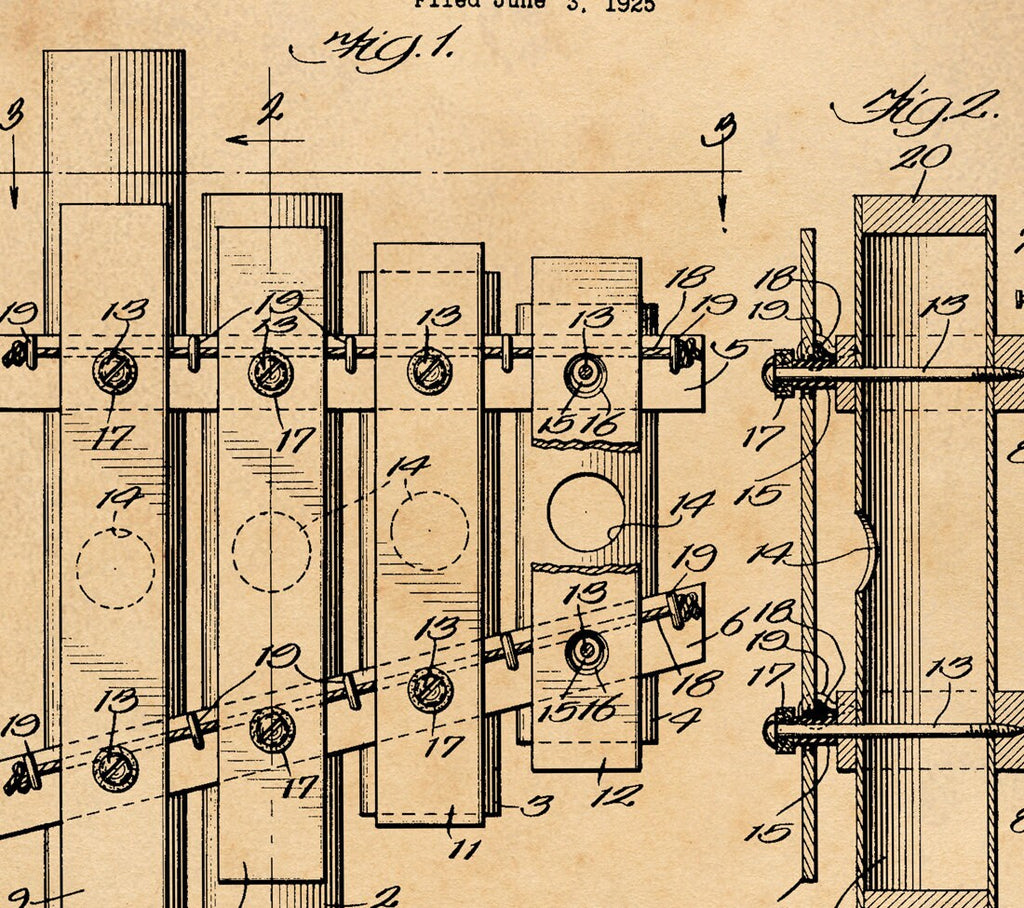 Filed June 3, 1925
Fig. 1.
Fig. 2.
3
2
3
20
19
13
19
13
13
13
18
19
5
18
19
13
17
17
15
16
17
15
14
14
14
14
19
13
6
18
19
17
13
13
19
13
15
16
18
4
19
13
17
17
12
3
11
15
9
2